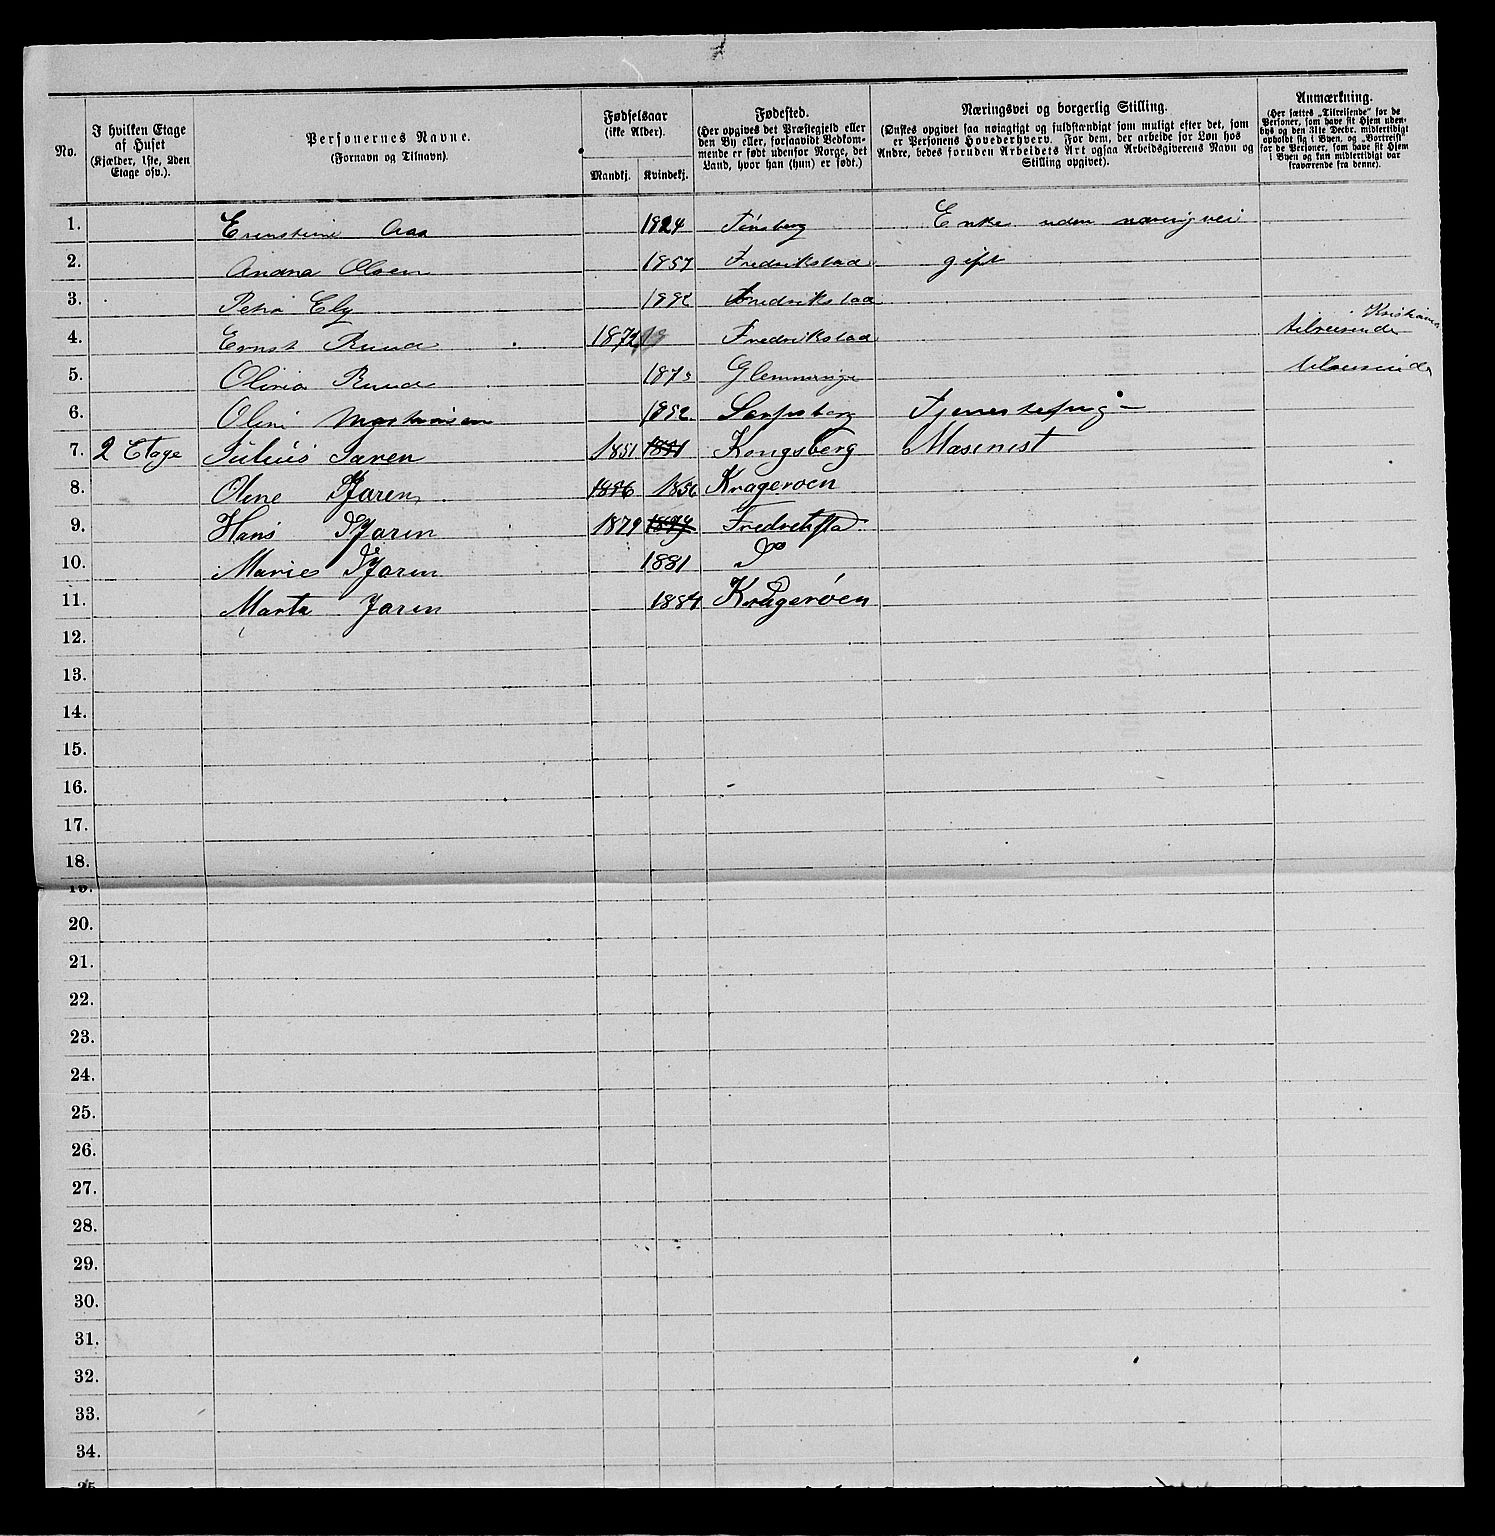 No.
I hvilken Etage af Huset
(Kjælder, 1ste, 2den Etage osv.).
Personernes Navne.
(Fornavn og Tilnavn).
Fødselsaar
(ikke Alder).
Mandkj. Kvindekj.
Fødested.
(Her opgives det Præstegjeld eller
den By eller, forsaavidt Vedkom-
mende er født udenfor Norge, det
Land, hvor han (hun) er født.)
Næringsvei og borgerlig Stilling.
(Ønskes opgivet saa nøiagtigt og fuldstændigt som muligt efter det, som
er Personens Hovederhverv. For dem, der arbeide for Løn hos
Andre, bedes foruden Arbeidets Art ogsaa Arbeidsgiverens Navn og
Stilling opgivet).
Anmærkning.
(Her sættes „Tilreisende" for de
Personer, som have sit Hjem uden-
bys og den 31te Decbr. midlertidigt
opholdt sig i Byen, og „Bortreist"
for de Personer, som have sit Hjem
i Byen og kun midlertidigt var
fraværende fra denne).
1. Ernstine Aas 1824 Tønsberg Enke uden næringvei
2. Andrea Olsen 1857 Fredrikstad gift
3. Petra Ely 1892 Fredrikstad
4. Ernst Ruud 1872 Fredrikstad tilreisende Kristiania
5. Olivia Ruud 187 Glemminge tilreisende
6. Oline Martinsen 1892 Sarpsborg
7. 2 Etage Julius Jaren 1851 1851 Kongsberg Masinist
8. Oline Jaren 1856 1856 Kragerøen
9. Hans Jaren 1879 1879 Fredrikstad
10. Marie Jaren 1881 Do
11. Marta Jaren 1884 Kragerøen
12.
13.
14.
15.
16.
17.
18.
19.
20.
21.
22.
23.
24.
25.
26.
27.
28.
29.
30.
31.
32.
33.
34.
35